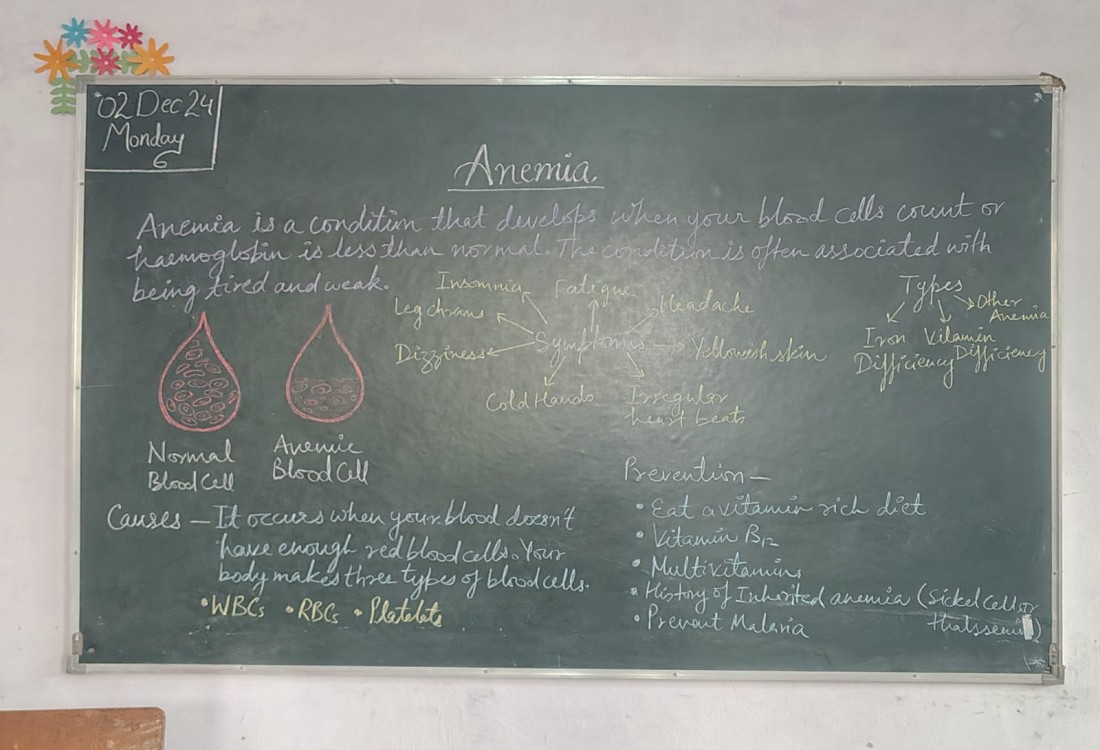 02 Dec 24
Monday
6
Anemia.
Anemia is a condition that develops when your blood cells count or
haemoglobin is less than normal. The condition is often associated with
being tired and weak.
Insomnia
Fatigue
Headache
Leg chrams
Symptoms
Dizziness
Yellowish skin
Cold Hands
Irregular
heart beats
Types
Other
Anemia
Iron
Difficiency
Vitamin
Difficiency
Normal
Blood Cell
Anemic
Blood Cell
Causes – It occurs when your blood doesn't
have enough red blood cells. Your
body makes three types of blood cells.
• WBCs • RBCs • Platelets
Prevention –
• Eat a vitamin rich diet
• Vitamin B12
• Multivitamins
• History of Inherited anemia (Sickel Cell or
• Prevent Malaria